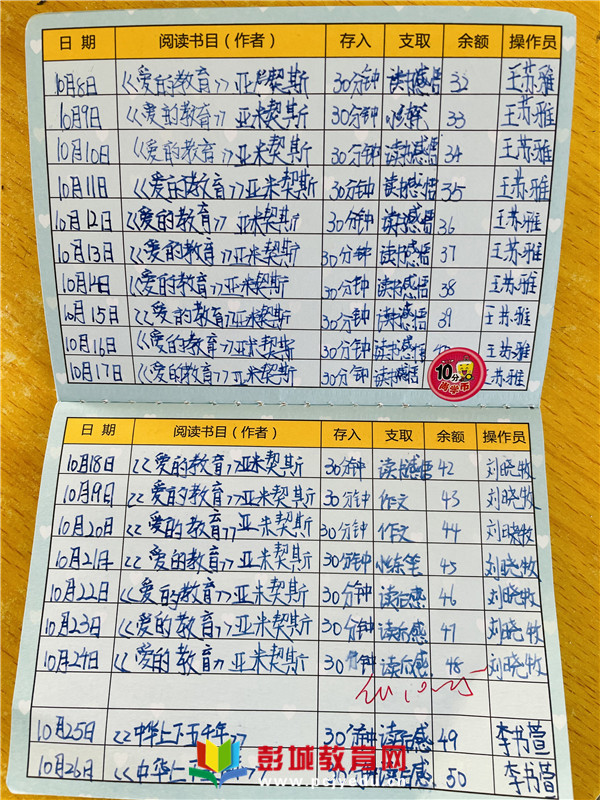 日 期 阅读书目(作者) 存入 支取 余额 操作员
10月8日 《爱的教育》亚米契斯 30分钟 读书感悟 32 王苏雅
10月9日 《爱的教育》亚米契斯 30分钟 33 王苏雅
10月10日 《爱的教育》亚米契斯 30分钟 读书感悟 34 王苏雅
10月11日 《爱的教育》亚米契斯 30分钟 读书感悟 35 王苏雅
10月12日 《爱的教育》亚米契斯 30分钟 读书感悟 36 王苏雅
10月13日 《爱的教育》亚米契斯 30分钟 读书感悟 37 王苏雅
10月14日 《爱的教育》亚米契斯 30分钟 读书感悟 38 王苏雅
10月15日 《爱的教育》亚米契斯 30分钟 读书感悟 39 王苏雅
10月16日 《爱的教育》亚米契斯 30分钟 读书感悟 王苏雅
10月17日 《爱的教育》亚米契斯 30分钟 读书感悟 苏雅
10分
日 期 阅读书目(作者) 存入 支取 余额 操作员
10月18日 《爱的教育》亚米契斯 30分钟 读书感悟 42 刘晓牧
10月19日 《爱的教育》亚米契斯 30分钟 作文 43 刘晓牧
10月20日 《爱的教育》亚米契斯 30分钟 作文 44 刘晓牧
10月21日 《爱的教育》亚米契斯 30分钟 45 刘晓牧
10月22日 《爱的教育》亚米契斯 30分钟 读后感 46 刘晓牧
10月23日 《爱的教育》亚米契斯 30分钟 读后感 47 刘晓牧
10月24日 《爱的教育》亚米契斯 30分钟 读后感 48 刘晓牧
10月25日 《中华上下五千年》 30分钟 读后感 49 李书萱
10月26日 《中华上下五 30分钟 读后感 50 李书萱
彭城教育网
www.pcjyedu.com